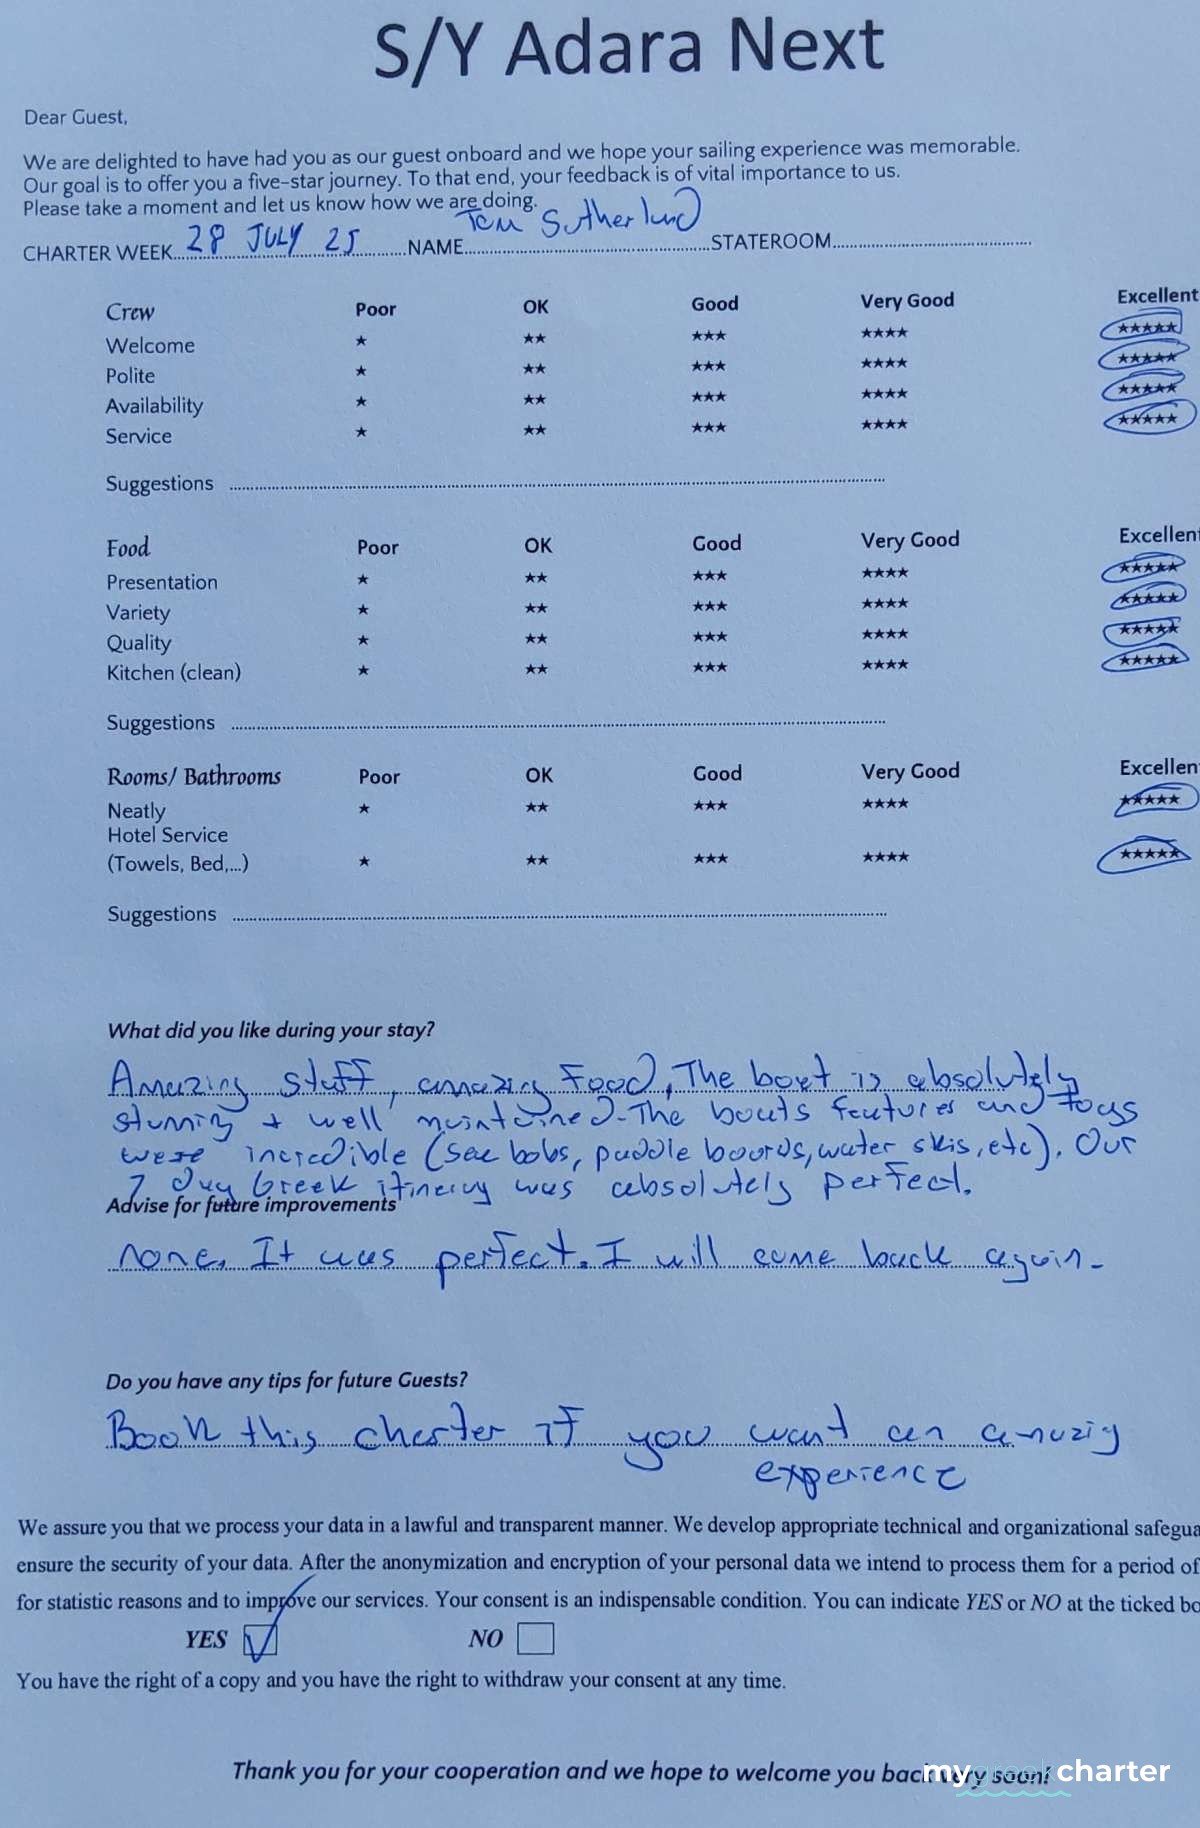 S/Y Adara Next
Dear Guest,
We are delighted to have had you as our guest onboard and we hope your sailing experience was memorable.
Our goal is to offer you a five-star journey. To that end, your feedback is of vital importance to us.
Please take a moment and let us know how we are doing.
CHARTER WEEK 28 JULY 25 NAME Tom Sutherland STATEROOM
Crew Poor OK Good Very Good Excellent
Welcome ★ ★★ ★★★ ★★★★ ★★★★★
Polite ★ ★★ ★★★ ★★★★ ★★★★★
Availability ★ ★★ ★★★ ★★★★ ★★★★★
Service ★ ★★ ★★★ ★★★★ ★★★★★
Suggestions
Food Poor OK Good Very Good Excellent
Presentation ★ ★★ ★★★ ★★★★ ★★★★★
Variety ★ ★★ ★★★ ★★★★ ★★★★★
Quality ★ ★★ ★★★ ★★★★ ★★★★★
Kitchen (clean) ★ ★★ ★★★ ★★★★ ★★★★★
Suggestions
Rooms/ Bathrooms Poor OK Good Very Good Excellen
Neatly ★ ★★ ★★★ ★★★★ ★★★★★
Hotel Service
(Towels, Bed,...) ★ ★★ ★★★ ★★★★ ★★★★★
Suggestions
What did you like during your stay?
Amazing staff, amazing food, The boat is absolutely
stunning + well maintained. The boats features and toys
were incredible (sea bobs, paddle boards, water skis, etc). Our
7 Day Greek itinerary was absolutely perfect.
Advise for future improvements
none. It was perfect. I will come back again.
Do you have any tips for future Guests?
Book this charter if you want an amazing
experience
We assure you that we process your data in a lawful and transparent manner. We develop appropriate technical and organizational safegua
ensure the security of your data. After the anonymization and encryption of your personal data we intend to process them for a period of
for statistic reasons and to improve our services. Your consent is an indispensable condition. You can indicate YES or NO at the ticked bo
YES NO
You have the right of a copy and you have the right to withdraw your consent at any time.
Thank you for your cooperation and we hope to welcome you back very soon!
mygreekcharter